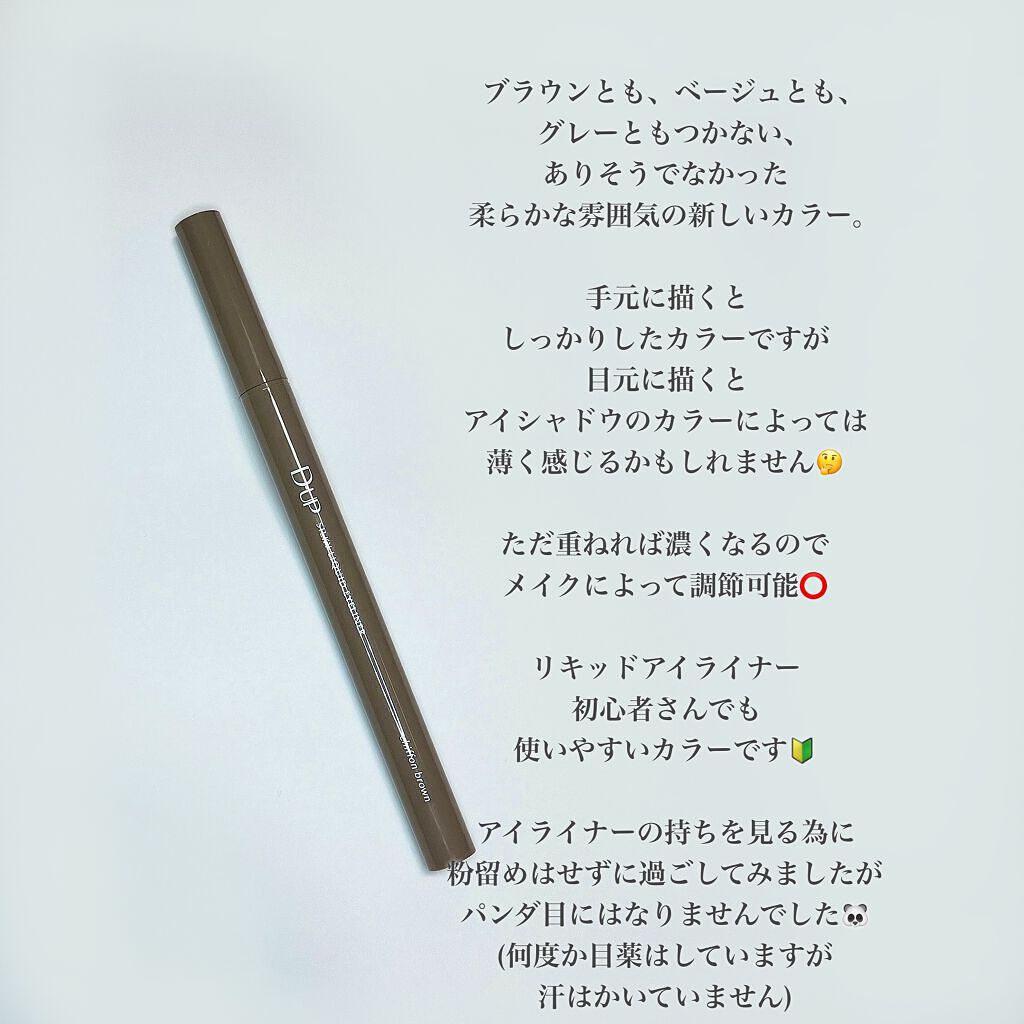 ブラウンとも、ベージュとも、
グレーともつかない、
ありそうでなかった
柔らかな雰囲気の新しいカラー。
手元に描くと
しっかりしたカラーですが
目元に描くと
アイシャドウのカラーによっては
薄く感じるかもしれません🤔
ただ重ねれば濃くなるので
メイクによって調節可能⭕
リキッドアイライナー
初心者さんでも
使いやすいカラーです🔰
アイライナーの持ちを見る為に
粉留めはせずに過ごしてみましたが
パンダ目にはなりませんでした🐼
(何度か目薬はしていますが
汗はかいていません)
D-UP
chiffon brown